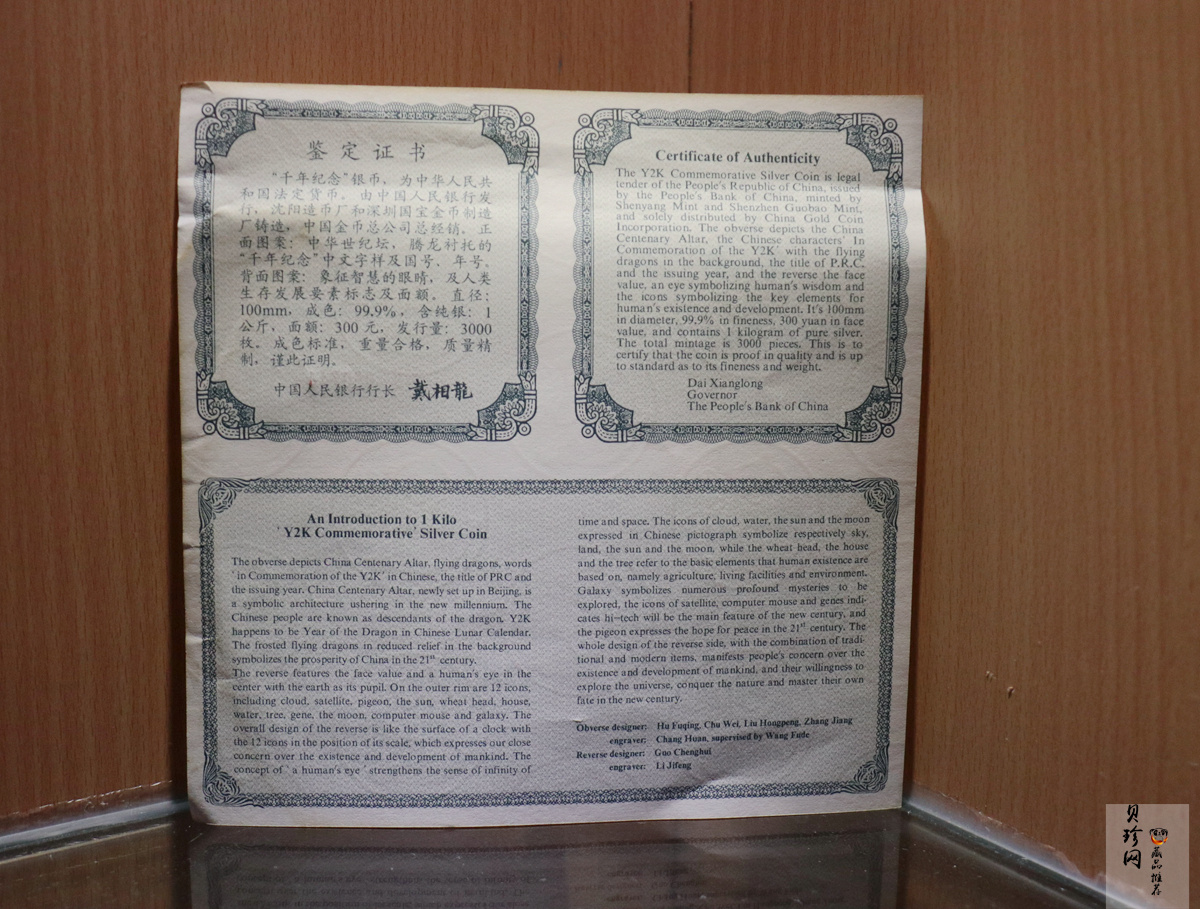 鉴定证书
“千年纪念”银币，为中华人民共
和国法定货币。由中国人民银行发
行，沈阳造币厂和深圳国宝金币制造
厂铸造，中国金币总公司总经销。正
面图案：中华世纪坛，腾龙衬托的
“千年纪念”中文字样及国号、年号。
背面图案：象征智慧的眼睛，及人类
生存发展要素标志及面额。直径：
100mm，成色：99.9%，含纯银：1
公斤，面额：300元，发行量：3000
枚。成色标准，重量合格，质量精
制，谨此证明。
中国人民银行行长 戴相龍
Certificate of Authenticity
The Y2K Commemorative Silver Coin is legal
tender of the People's Republic of China, issued
by the People's Bank of China, minted by
Shenyang Mint and Shenzhen Guobao Mint,
and solely distributed by China Gold Coin
Incorporation. The obverse depicts the China
Centenary Altar, the Chinese characters' In
Commemoration of the Y2K' with the flying
dragons in the background, the title of P.R.C.
and the issuing year, and the reverse the face
value, an eye symbolizing human's wisdom and
the icons symbolizing the key elements for
human's existence and development. It's 100mm
in diameter, 99.9% in fineness, 300 yuan in face
value, and contains 1 kilogram of pure silver.
The total mintage is 3000 pieces. This is to
certify that the coin is proof in quality and is up
to standard as to its fineness and weight.
Dai Xianglong
Governor
The People's Bank of China
An Introduction to 1 Kilo
'Y2K Commemorative' Silver Coin
The obverse depicts China Centenary Altar, flying dragons, words
'in Commemoration of the Y2K' in Chinese, the title of PRC and
the issuing year. China Centenary Altar, newly set up in Beijing, is
a symbolic architecture ushering in the new millennium. The
Chinese people are known as descendants of the dragon. Y2K
happens to be Year of the Dragon in Chinese Lunar Calendar.
The frosted flying dragons in reduced relief in the background
symbolizes the prosperity of China in the 21st century.
The reverse features the face value and a human's eye in the
center with the earth as its pupil. On the outer rim are 12 icons,
including cloud, satellite, pigeon, the sun, wheat head, house,
water, tree, gene, the moon, computer mouse and galaxy. The
overall design of the reverse is like the surface of a clock with
the 12 icons in the position of its scale, which expresses our close
concern over the existence and development of mankind. The
concept of 'a human's eye' strengthens the sense of infinity of
time and space. The icons of cloud, water, the sun and the moon
expressed in Chinese pictograph symbolize respectively sky,
land, the sun and the moon, while the wheat head, the house
and the tree refer to the basic elements that human existence are
based on, namely agriculture, living facilities and environment.
Galaxy symbolizes numerous profound mysteries to be
explored, the icons of satellite, computer mouse and genes indi-
cates hi-tech will be the main feature of the new century, and
the pigeon expresses the hope for peace in the 21st century. The
whole design of the reverse side, with the combination of tradi-
tional and modern items, manifests people's concern over the
existence and development of mankind, and their willingness to
explore the universe, conquer the nature and master their own
fate in the new century.
Obverse designer: Hu Fuqing, Chu Wei, Liu Hongpeng, Zhang Jiang
engraver: Chang Huan, supervised by Wang Fude
Reverse designer: Guo Chenghui
engraver: Li Jifeng
贝珍网
藏品推荐